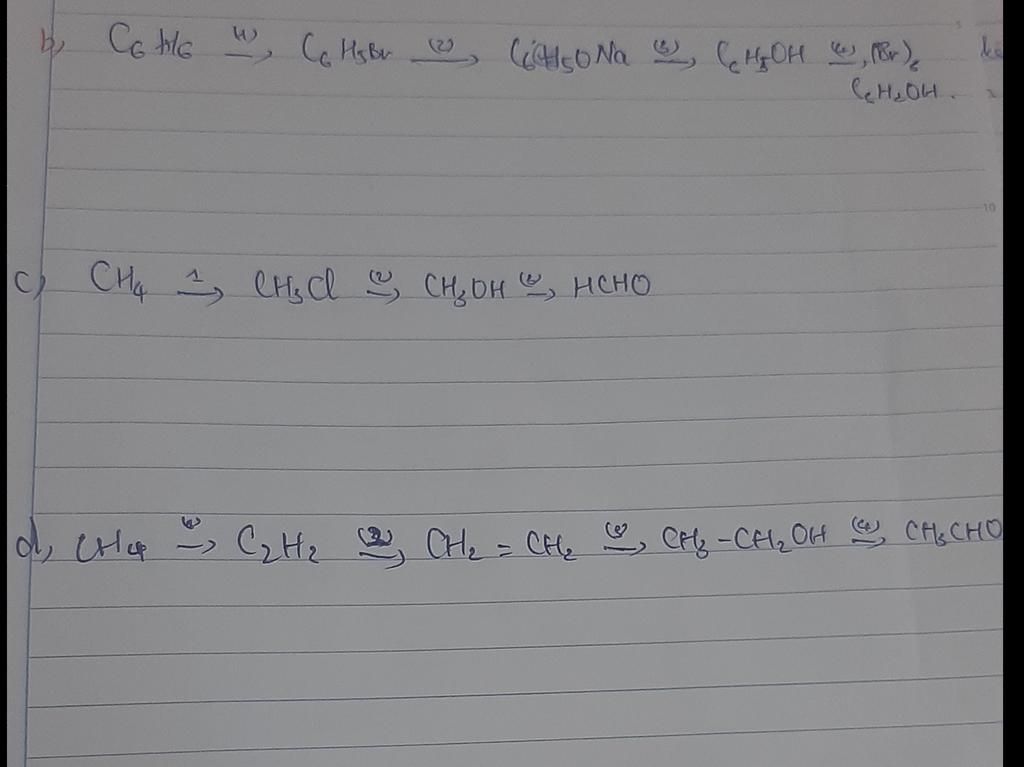 b, C6H6 (1)→ C6H5Br (2)→ C6H5ONa (3)→ C6H5OH (4)→ (Br)6
C6H2OH.
10
c) CH4 1→ CH3Cl (2)→ CH3OH (3)→ HCHO
d, CH4 (1)→ C2H2 (2)→ CH2 = CH2 (3)→ CH3-CH2OH (4)→ CH3CHO